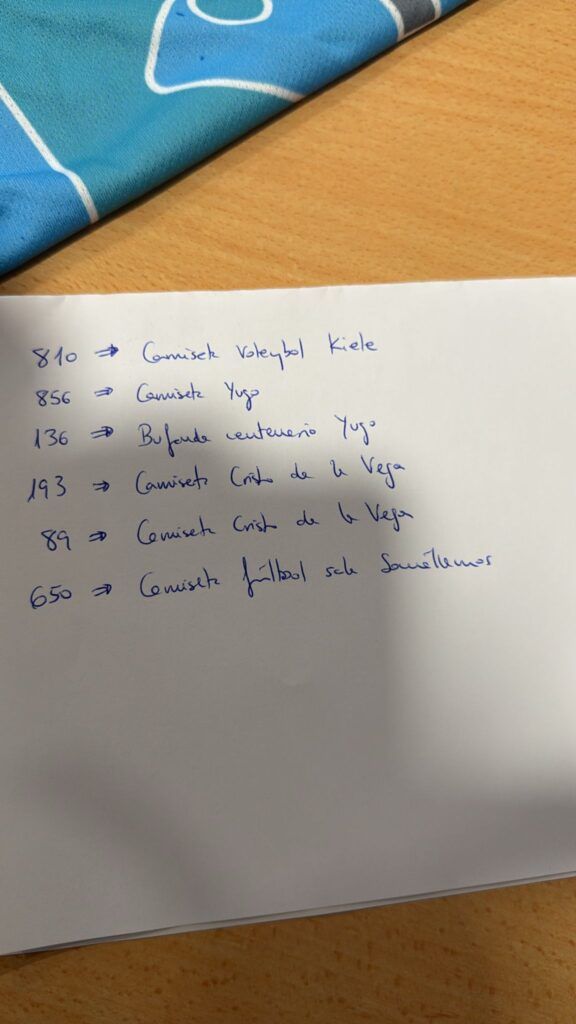 810 ⇒ Camiseta Voleybol Kiele
856 ⇒ Camiseta Yugo
136 ⇒ Bufanda centenario Yugo
193 ⇒ Camiseta Cristo de la Vega
89 ⇒ Camiseta Cristo de la Vega
650 ⇒ Camiseta fútbol sala